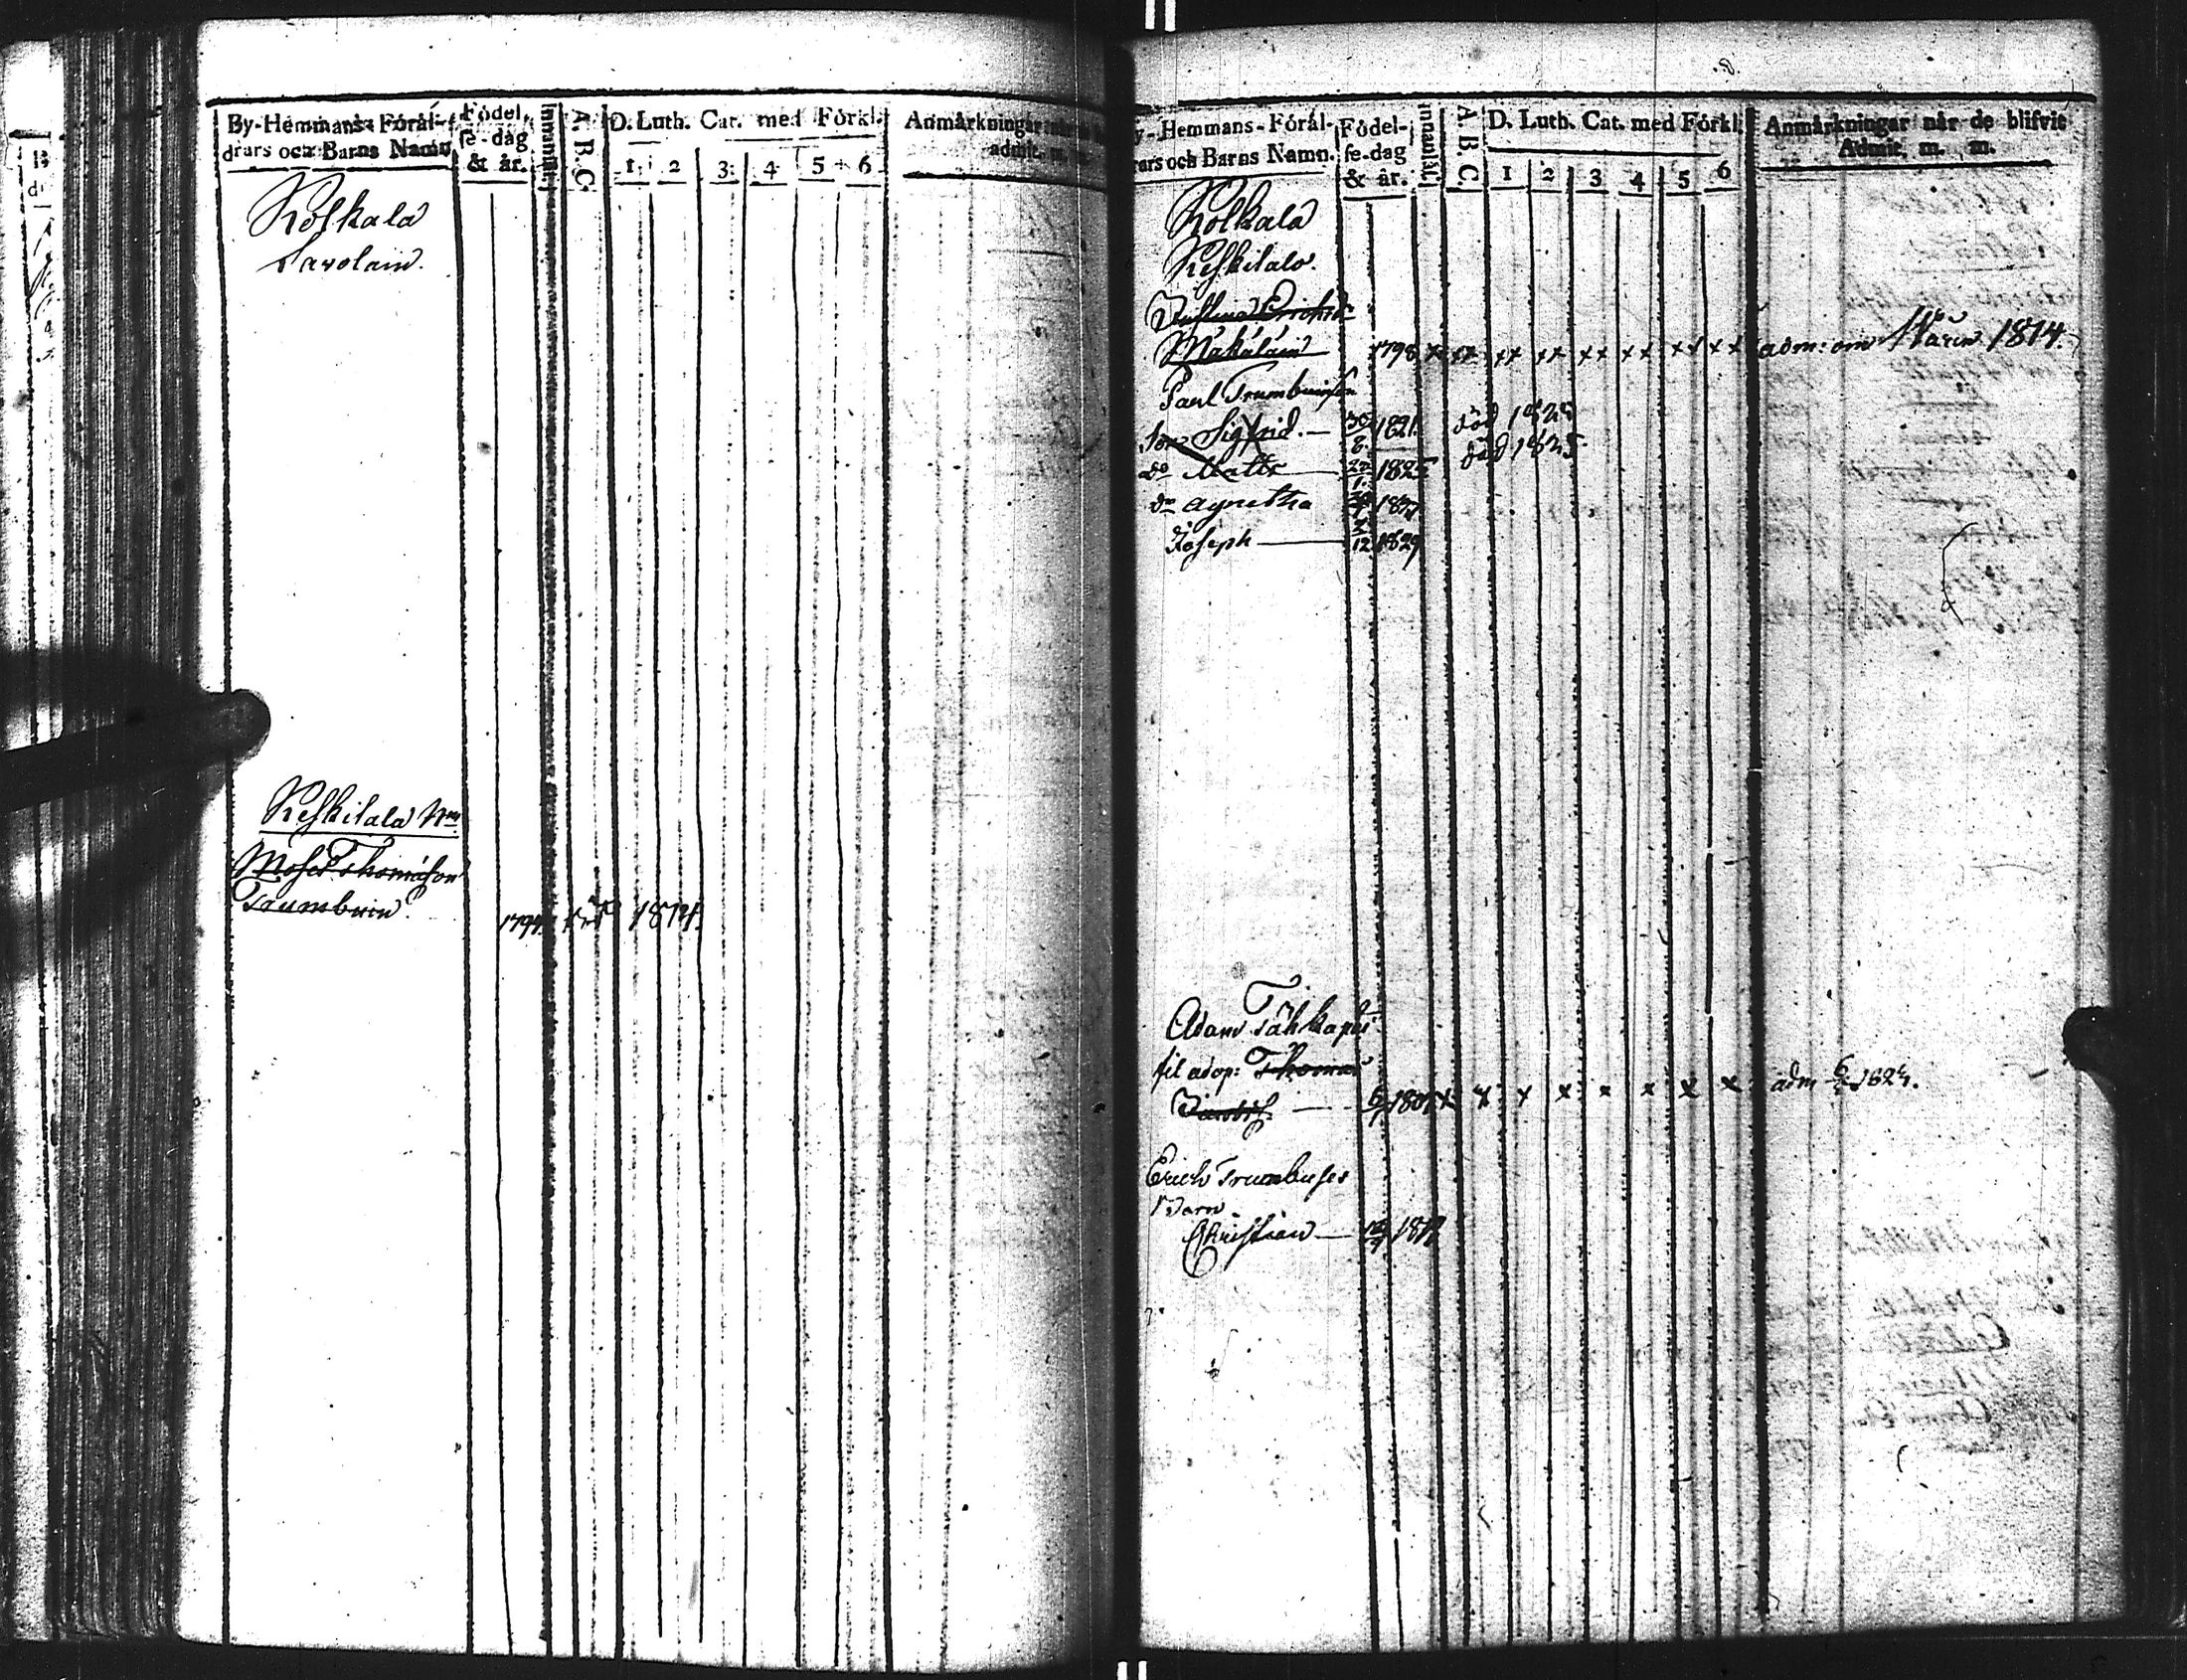 By-Hemmans- Förál-
drars och Barns Namn.
Födel-
se-dag
& år.
Innanläs.
A. B. C.
D. Luth. Cat. med Förkl.
1 2 3 4 5 6
Anmärkningar när
admit. m.
Kolkala
Savolain.
Keskitalo Nm
Moses Thomasson
Trumbuin. 1794. död 1814.
By-Hemmans-Förál-
rars och Barns Namn.
Födel-
se-dag
& år.
Innanläs.
A. B. C.
D. Luth. Cat. med Förkl.
1 2 3 4 5 6
Anmärkningar när de blifvit
Admit. m. m.
Kolkala
Keskitalo.
Justina Erichsd.
Makalain 1798 x xx xx xx xx xx xx xx adm: om Våren 1814.
Paul Trumbuinson
Son Sigfrid. — 30/8 1821. död 1825
do Matts — 1825 död 1825
dr Agnetha
Joseph — 2/12 1829
Adam Tähkapää
fil adop: Thomas
Jacobss. — x x x x x x x x adm
Erich Trumbuses
Barn
Christian —